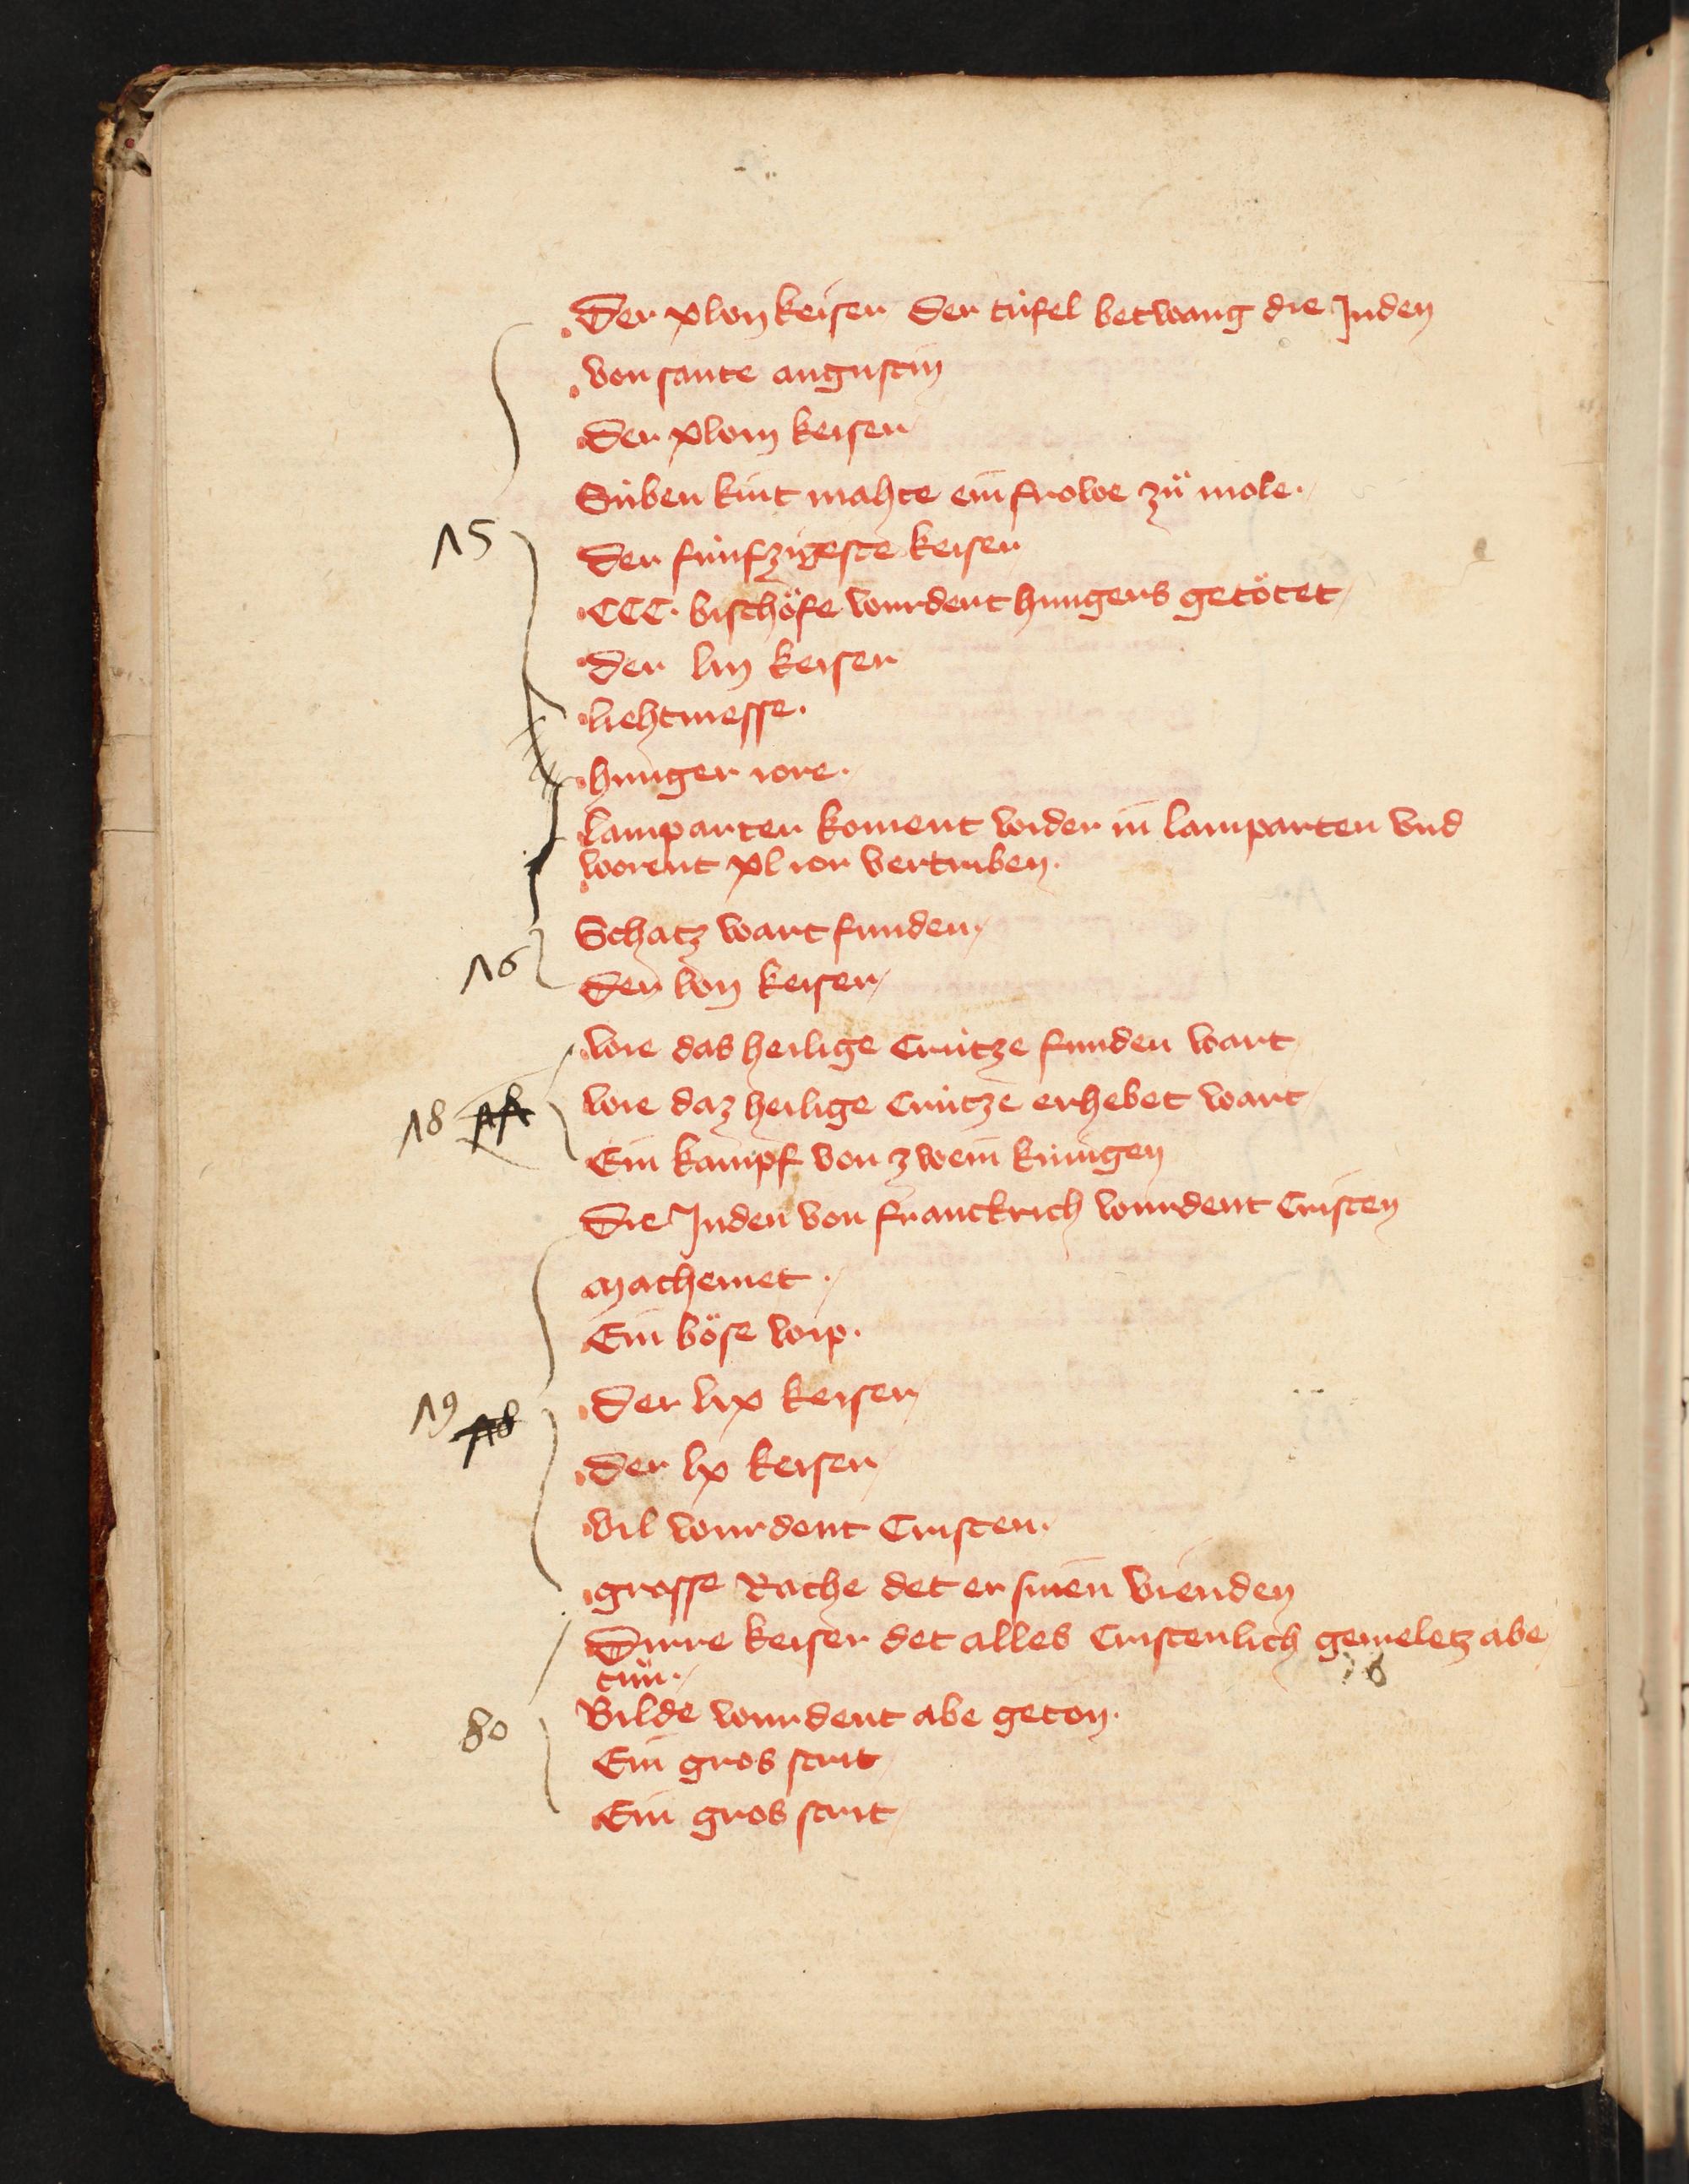 Der xlvij keiser Der tüfel betwang die Juden
von sante augustin
Der xlviij keiser
Süben kint mahte ein frowe zů mole.
Der fünfzigeste keiser
CCC. bischöfe wurdent hungers getötet
der liij keiser
liehtmesse.
hunger iore.
lamparten koment wider in lamparten vnd
worent xl ior vertriben.
Schatz wart funden
Der lvij keiser
wie das heilige Crütze funden wart
wie daz heilige Crütze erhebet wart
Ein kampf von zwein künigen
Die Juden von franckrich wurdent Cristen
Machemet.
Ein böse wip.
Der lix keiser
Der lx keiser
vil wurdent Cristen.
grosse Rache det er sinen vienden
Dirre keiser det alles Cristenlich gemeletz abe
tůn.
Bilde wurdent abe geton.
Ein gros strit
Ein gros strit